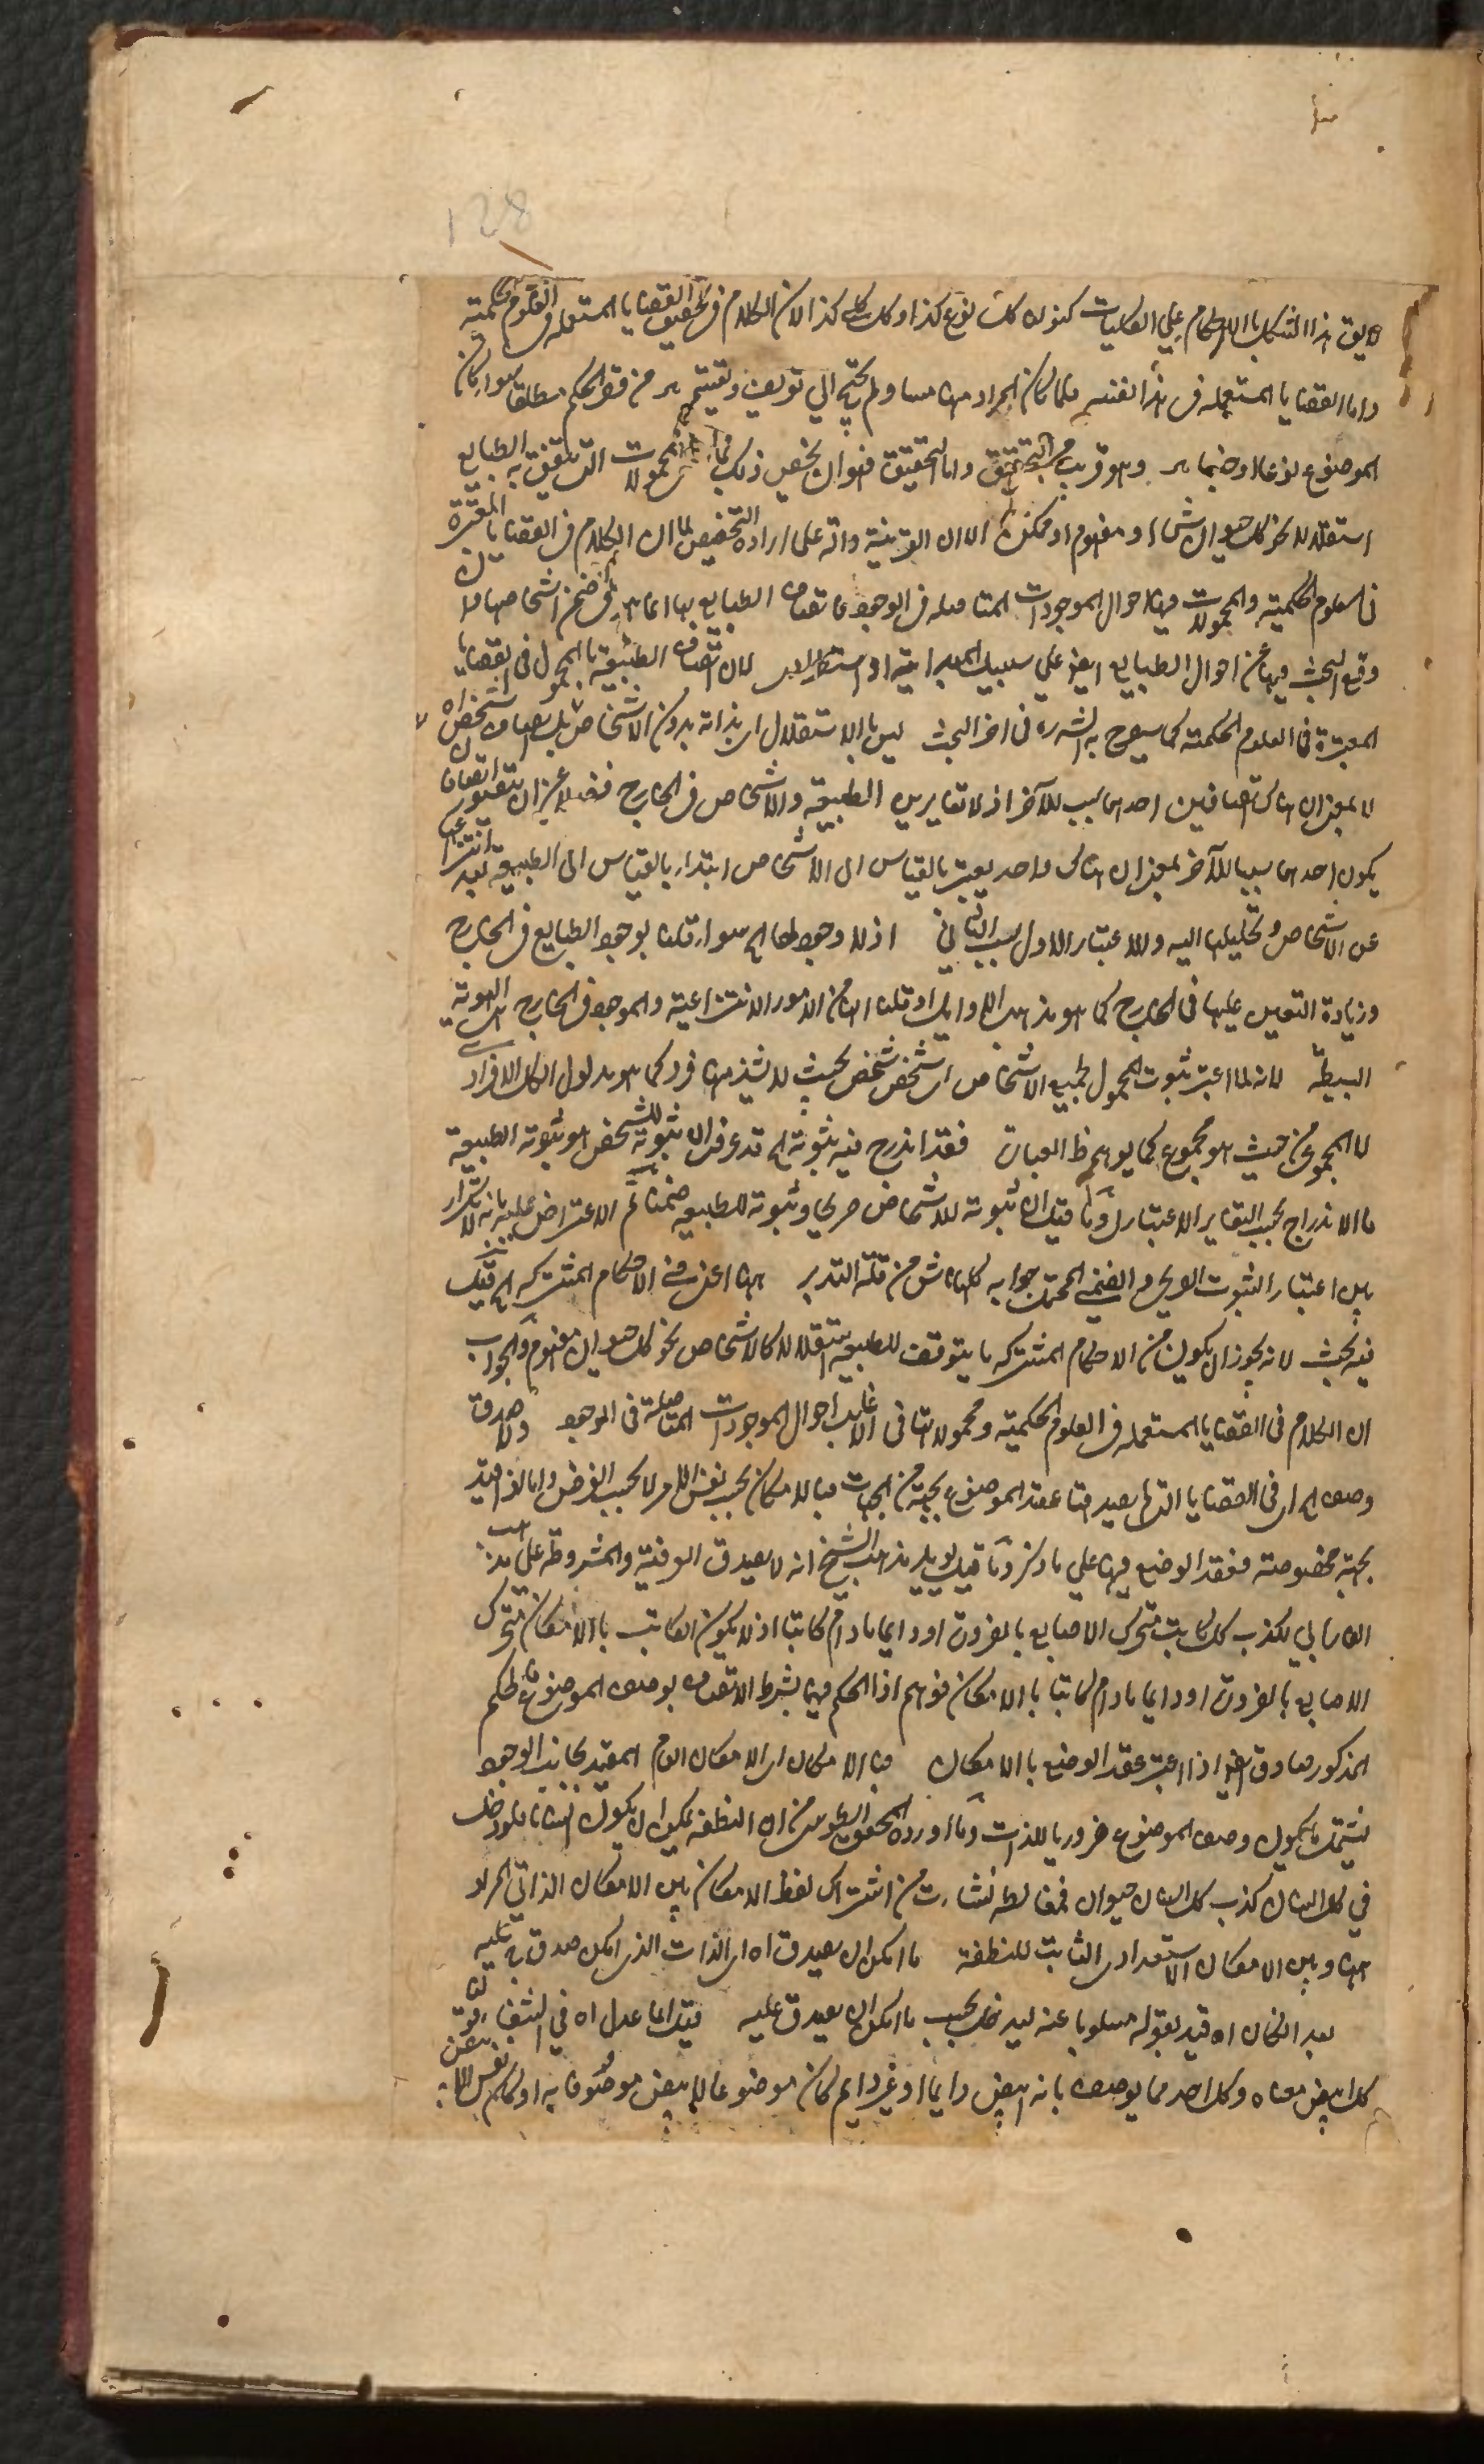 128
لا يق هذا اشكل بالاحكام على الكليات كقولنا كل نوع كذا وكل كلي كذا لان الكلام في تحقيق القضايا المستعملة في العلوم الحكمية
واما القضايا المستعملة في هذا الفن فلما كان المراد منها لم يحتج الى تعريف وتفتيش من فقد الحكم مطلقا سواء كان
الموضوع نوعا او وهو قريب من التحقيق واما التحقيق فهو ان يخص ذلك المحمولات التي يتصف به الطبايع
استقلالا نحو كل حيوان شيء او مفهوم او ممكن الا ان القرينة دالة على ارادة التخصيص لما ان الكلام في القضايا المعتبرة
في العلوم الحكمية والمحمولات فيها احوال الموجودات المتاصلة في الوجود فاتصاف الطبايع بها انما هو في ضمن اشخاصها ولا
وقع البحث فيها عن احوال الطبايع ايض على سبيل المبدائية او استقلالا لان اتصاف الطبيعة بالمحمول في القضايا
المعتبرة في العلوم الحكمية كما سيصرح به الش ره في اخر البحث ليس بالاستقلال اي بذاته بدون الاشخاص بل بعد اتصاف اشخاص
لا بمعنى ان هناك اتصافين احدهما سبب للآخر اذ لا تغاير بين الطبيعة والاشخاص في الخارج فضلا عن ان يتصور اتصافان
يكون احدهما سببا للآخر بمعنى ان هناك واحد يعتبر بالقياس الى الاشخاص ابتداء وبالقياس الى الطبيعة بعد انتزاعها
عن الاشخاص وتحليلها اليه والاعتبار الاول سبب الثاني اذ لا وجود لها الخ سواء قلنا بوجود الطبايع في الخارج
وزيادة التعين عليها في الخارج كما هو مذهب الاوايل او قلنا انها من الامور الانتزاعية والموجود في الخارج هي الهوية
البسيطة لانه لما اعتبر ثبوت المحمول لجميع الاشخاص اي شخص شخص بحيث لا يشذ منها فرد كما هو مدلول الكل الافرادي
لا المجموع من حيث هو مجموع كما يوهم ظ العبارة فقد اندرج فيه ثبوته الخ قد عرفت ان ثبوته للشخص هو ثبوته للطبيعة
فالاندراج بحسب التغاير الاعتباري وما قيل ان ثبوته للاشخاص صريحي وثبوته للطبيعة ضمنا ثم الاعتراض عليه بانه لا
بين اعتبار الثبوت الصريحي والضمني المحتمل جوابه كلها ناش من قلة التدبر هنا اعني في الاحكام المشتركة الخ قيل
فيه بحث لانه يجوز ان يكون من الاحكام المشتركة ما يتوقف للطبيعة استقلالا كالاشخاص نحو كل حيوان مفهوم والجواب
ان الكلام في القضايا المستعملة في العلوم الحكمية ومحمولاتها في الاغلب احوال الموجودات المتاصلة في الوجود ولا صدق
وصف الخ اي في القضايا التي يصدق عقد الموضوع بجهة من الجهات فبالامكان بحسب نفس الامر لا بحسب الفرض واما لو قيد
بجهة مخصوصة فعقد الوضع فيها على ما ذكر وما قيل يؤيد مذهب الشيخ انه لا يصدق العرفية والمشروطة على مذهب
الفارابي لكذب كل كاتب متحرك الاصابع بالضرورة او دايما ما دام كاتبا اذ لا يكون الكاتب بالامكان متحرك
الاصابع بالضرورة او دايما ما دام كاتبا بالامكان فوهم اذ الحكم فيها بشرط الاتصاف بوصف الموضوع فالحكم
المذكور صادق ايض اذا اعتبر عقد الوضع بالامكان فبالامكان اي الامكان العام المقيد بجانب الوجود
فيشمل ما يكون وصف الموضوع ضروريا للذات وما اورده المحقق الطوسي من ان النطفة يمكن ان يكون انسانا فلو دخل
في كل انسان كذب كل انسان حيوان فمغالطة نشات من اشتراك لفظ الامكان بين الامكان الذاتي المراد
هنا وبين الامكان الاستعدادي الثابت للنطفة ما امكن ان يصدق اه اي الذات الذي امكن صدق ب عليه
بعد ان كان اه قيد بقوله مسلوبا عنه ليدخل بحسب ما امكن ان يصدق عليه قيل انما عدل اه في الشفاء قولنا
كل ابيض معناه وكل واحد مما يوصف بانه ابيض دايما او غير دايم كان موضوعا للابيض موصوفا به او كان نفس الابيض